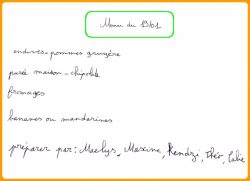 Menu du 13/01
endives-pommes gruyère
purée maison-chipolata
fromages
bananes ou mandarines
préparer par: Maelys, Maxime, Kendzi, Théo,